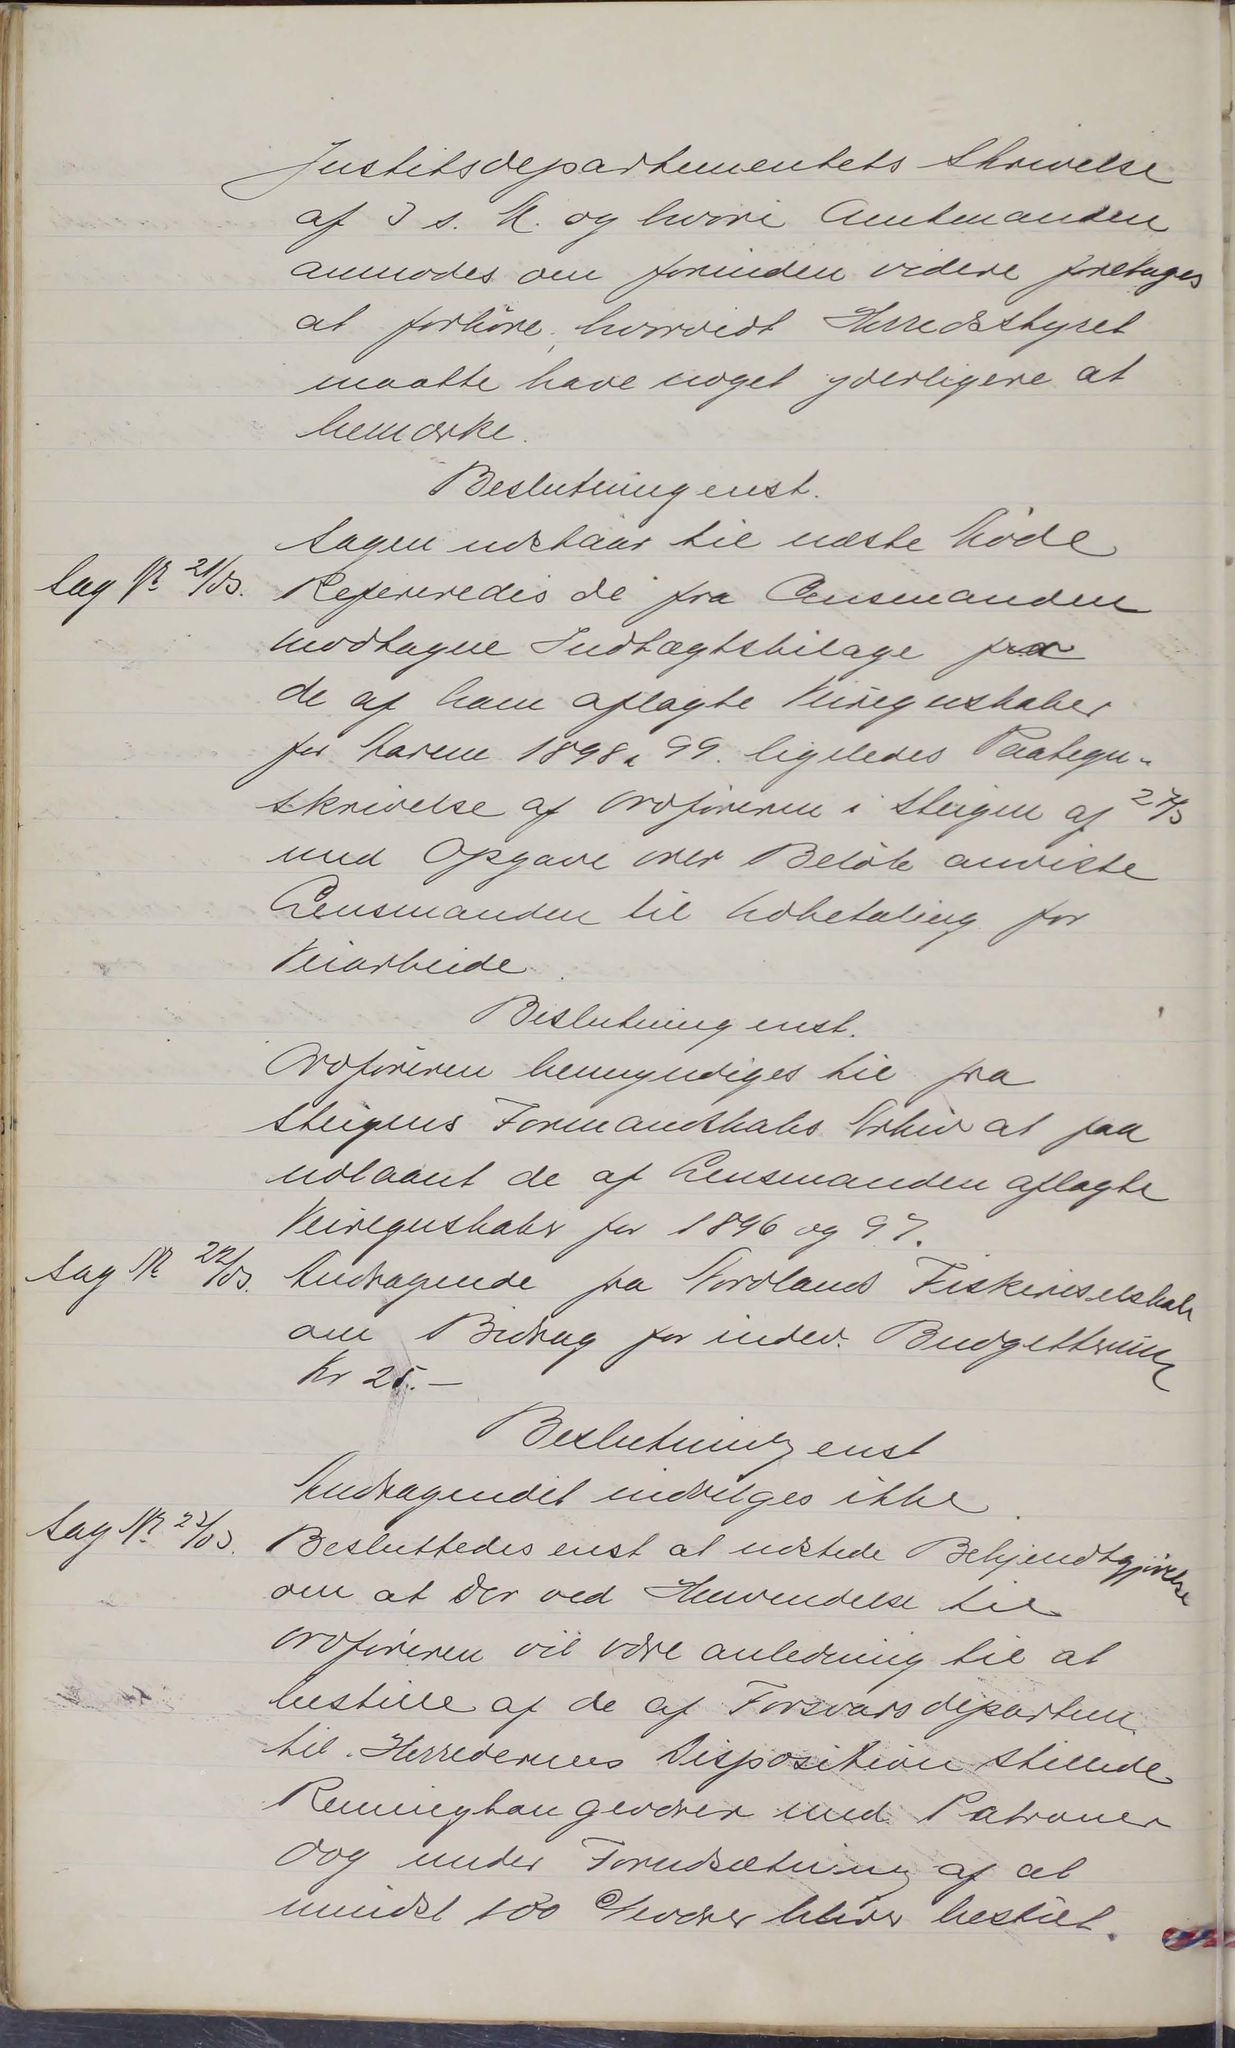 Justitsdepartementets Skrivelse
af 3 s. M. og hvori Amtmanden
anmodes om forinden videre foretages
at forhøre, hvorvidt Herredsstyret
maatte have noget yderligere at
bemærke.
Beslutning enst.
Sagen udstaar til næste Møde
Sag Nr 21/03. Refereredes de fra Lensmanden
modtagne Indtægtsbilage fra
de af ham aflagte Veiregnskaber
for Aarene 1898 & 99. ligeledes Paategn-
skrivelse af Ordføreren i Steigen af 27/3
med Opgave over Beløb anviste
Lensmanden til Udbetaling for
Veiarbeide.
Beslutning enst.
Ordføreren bemyndiges til fra
Steigens Formandskabs Arkiv at faa
udlaant de af Lensmanden aflagte
Veiregnskaber for 1896 og 97.
Sag Nr 22/03. Andragende fra Nordlands Fiskeriselskab
om Bidrag for indev. Budgettermin
Kr 25.—
Beslutning enst
Andragendet indvilges ikke.
Sag Nr. 23/03. Besluttedes enst at udstede Bekjendtgjørelse
om at der ved Henvendelse til
Ordføreren vil være anledning til at
bestille af de af Forsvarsdepartem.
til Herredernes Disposition stillede
Remingtongeværer med Patroner
dog under Forudsætning af at
mindst 100 Geværer bliver bestilt.